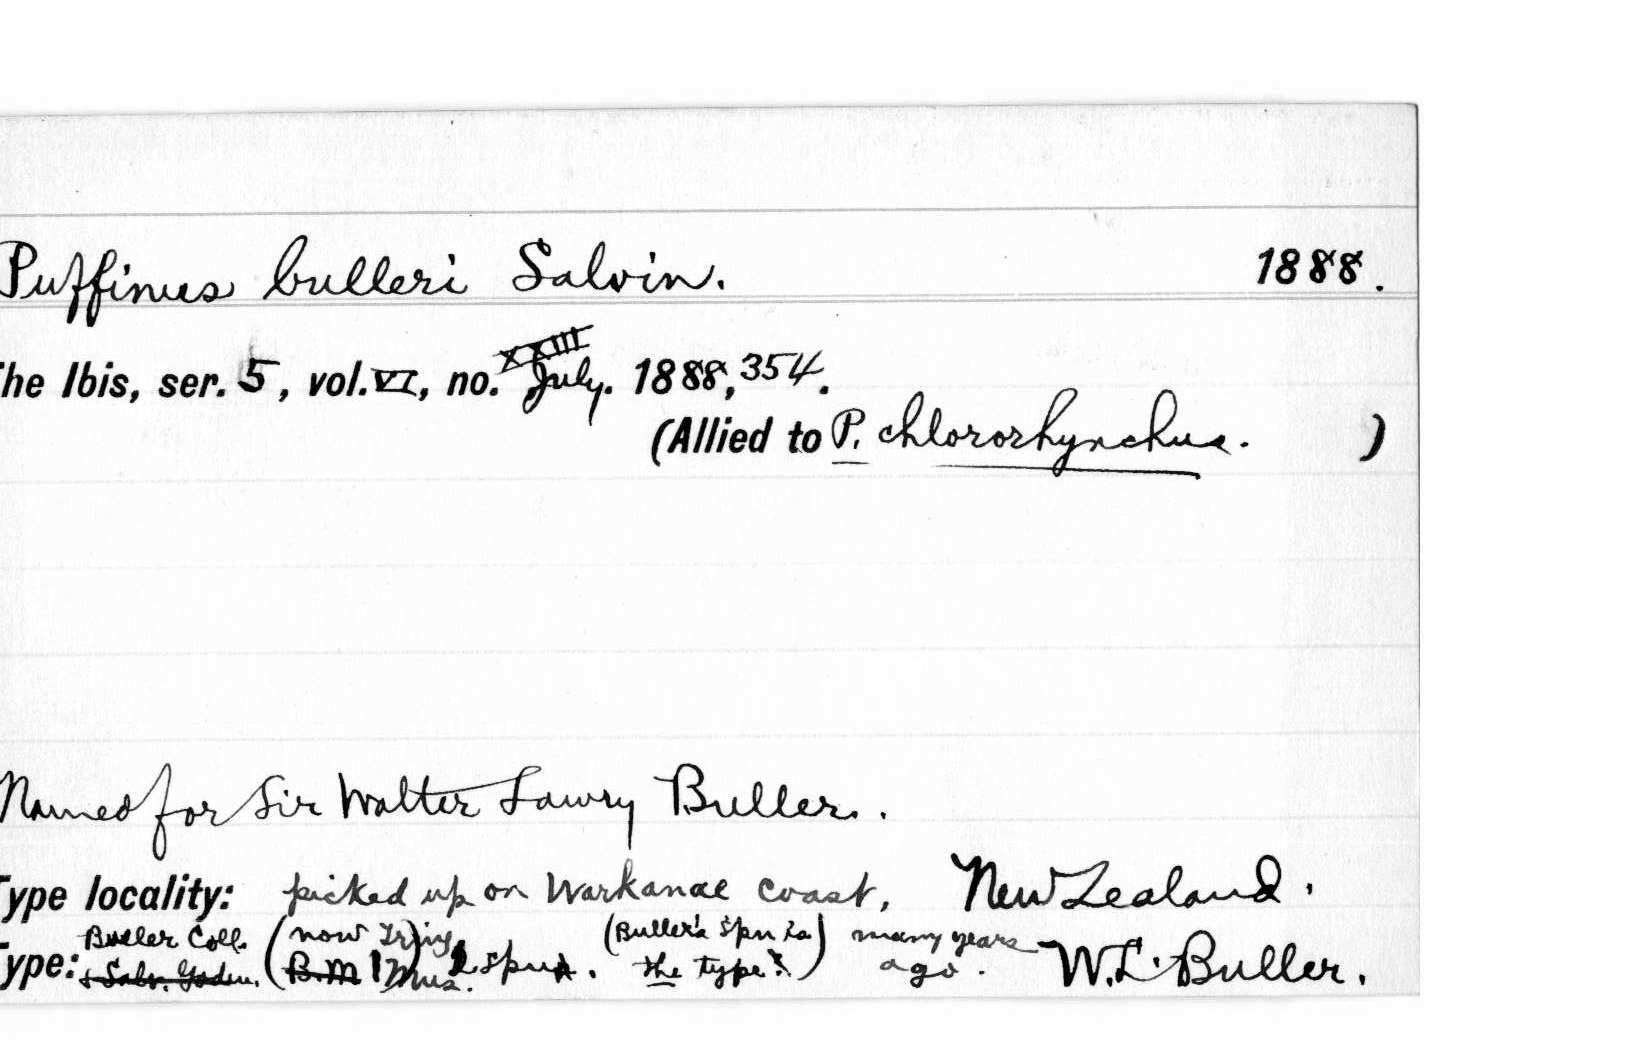 Puffinus bulleri Salvin. 1888.
he Ibis, ser. 5, vol. VI, no. XXIII July. 1888, 354.
(Allied to P. chlororhynchus. )
Named for Sir Walter Lawry Buller.
Type locality: picked up on Warkanae coast, New Zealand.
Buller Coll. (now Tring (Buller's spn is) many years
ype: & Salv. Godm. B.M. Mus.) spn. the type ago. W.L. Buller.